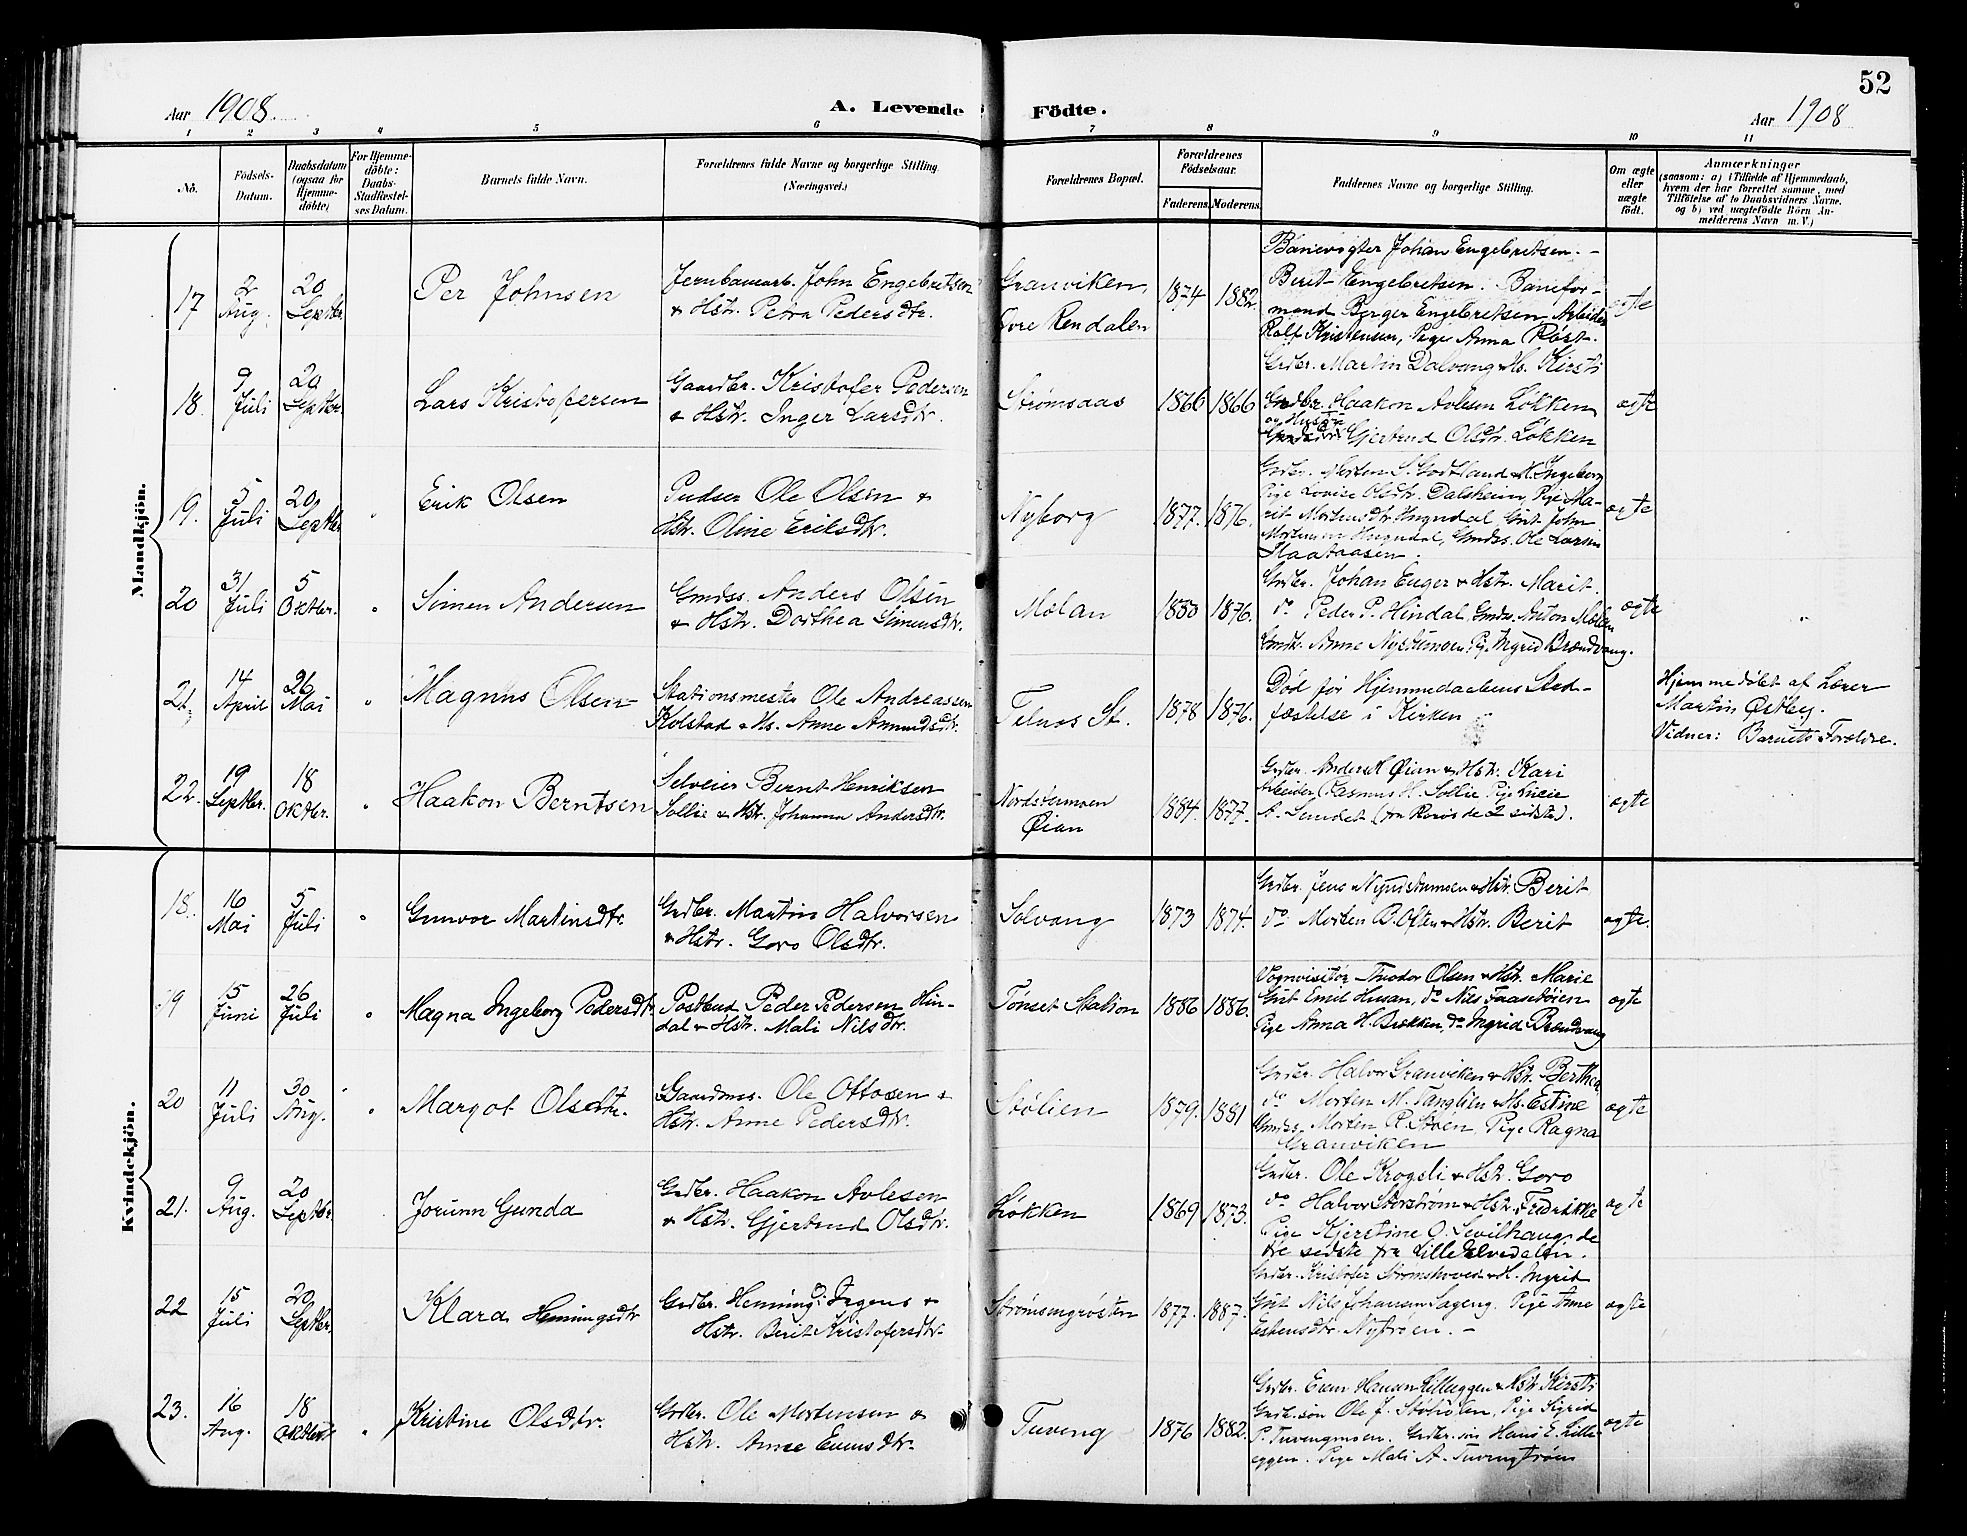 52
Aar 1908.
A. Levende Födte.
Aar 1908
1 2 3 4 5 6 7 8 9 10 11
No.
Födsels-
Datum.
Daabsdatum
(ogsaa for
Hjemme-
döbte)
For Hjemme-
döbte:
Daabs-
Stadfæstel-
ses Datum.
Barnets fulde Navn.
Forældrenes fulde Navne og borgerlige Stilling
(Næringsvei.)
Forældrenes Bopæl.
Forældrenes
Födselsaar.
Faderens. Moderens.
Faddernes Navne og borgerlige Stilling.
Om ægte
eller
uægte
födt.
Anmærkninger
(saasom: a) i Tilfælde af Hjemmedaab,
hvem der har forrettet samme, med
Tilføielse af to Daabsvidners Navne.
og b) ved uægtefödte Börn An-
melderens Navn m. V.)
Mandkjön.
17
2
Aug.
20
Septbr.
Per Johnsen
Jernbanearb. John Engebretsen
& Hstr. Petra Pedersdtr.
Granviken,
Øvre Rendalen
1874 1882
Banevogter Johan Engebretsen. -
Berit Engebretsen. Banefor-
mand Berger Engebretsen Arbeider
Rolf Kristensen, Pige Anna Røst.
ægte
18.
9
Juli
20
Septbr.
Lars Kristofersen
Gaardbr. Kristofer Pedersen
& Hstr. Inger Larsdtr.
Strømsaas
1866 1866
Grdbr. Martin Dalvang & Hs. Kirsti
Grdbr. Haakon Avlesen Løkken
og Hustru
Gjertrud Olsdtr. Løkken
ægte
19.
5
Juli
20
Septbr.
Erik Olsen
Pudser Ole Olsen &
Hstr. Oline Eriksdtr.
Nyborg
1877. 1876.
Grdbr. Morten S. Godtland & H. Ingeborg
Pige Lovise Olsdtr. Dalsheim, Pige Ma-
rit Mortensdtr. Hingndal, Gut John
Mortensen Hingndal, Gmdss. Ole Larsen
Flaataasen.
ægte
20
31
Juli
5
Oktbr.
Simen Andersen
Gmdss. Anders Olsen
& Hstr. Dorthea Simensdtr.
Molan
1880 1876.
Grdbr. Johan Enger & Hstr. Marit.
do Peder P. Hindal, Gmds. Anton Molan
Gmdk. Anne Nystumoen, Pig. Ingrid Brændvang.
ægte
21.
14
April
26
Mai
Magnus Olsen
Stationsmester Ole Andreassen
Kolstad & Hs. Anne Amundsdtr.
Telnes St.
1878 1876.
Død før Hjemmedaabens Stad-
fæstelse i Kirken
Hjemmedøbt af Lærer
Martin Østby.
Vidner: Barnets Forældre.
22.
19
Septbr.
18
Oktbr.
Haakon Berntsen
Selveier Bernt Henriksen
Sollie & Hstr. Johanna Andersdtr.
Nordstumoen
Øian
1884. 1877.
Grdbr. Anders K Øian & Hstr. Kari
Arbeider Rasmus H. Sollie Pige Lucie
A. Sundet (fra Røros de 2 sidste).
ægte
Kvindekjön.
18.
16
Mai
5
Juli
Gunvor Martinsdtr.
Grdbr. Martin Halvorsen
& Hstr. Goro Olsdtr.
Solvang
1873 1874.
Grdbr. Jens Nyndstumoen & Hstr. Berit
do Morten B. Oftan & Hstr. Berit
ægte.
19
15
Juni
26
Juli
Magna Ingeborg Pedersdtr.
Postbud Peder Pedersen Hin-
dal & Hstr. Mali Nilsdtr.
Tønset Station
1886 1886.
Vognvisitør Theodor Olsen & Hstr. Marie
Gut Emil Husan, do Nils Faasetøien
Pige Anna H. Brækken, do Ingrid Brændvang
ægte
20
11
Juli
30
Aug.
Margot Olsdtr.
Gaardms. Ole Ottosen &
Hstr. Anne Pedersdtr.
Stølien
1879. 1881
Grdbr. Halvor Granviken & Hstr. Berthea
do Morten M. Tanglien & Hs. Estine
Gmdss. Morten R. Støen, Pige Ragna
Granviken
ægte
21.
9
Aug.
20
Septbr.
Jorunn Gunda
Grdbr. Haakon Avlesen
& Hstr. Gjertrud Olsdtr.
Løkken
1869 1873.
Grdbr. Ole Krogsli & Hstr. Goro
do Halvor Storstrøm & Hstr. Fredrikke
Pige Kjerstine O. Sevilhaug, de
tre sidste fra Lille Elvedalen.
ægte
22
15
Juli
20
Septbr.
Klara Hemingsdtr
Grdbr. Hemming Jngens &
Hstr. Berit Kristofersdtr.
Strømsmgrøsten
1877. 1887.
Grdbr. Kristofer Strømshoved & H. Ingrid
Gut Nils Johansen Sageng. Pige Anne
Estensdtr. Nytrøen. -
ægte
23.
16
Aug.
18
Oktbr.
Kristine Olsdtr.
Grdbr. Ole Mortensen &
Hstr. Anne Evensdtr.
Tuveng
1876 1882.
Grdbr. Even Hansen Lilleggen & Hstr. Kirsti
Grdbr.søn Ole J. Støtrøen, Pige Sigrid
P. Tuvengmoen. Grdbr.søn Hans E. Lille-
eggen. Pige Mali A. Tuvengtrøen
ægte